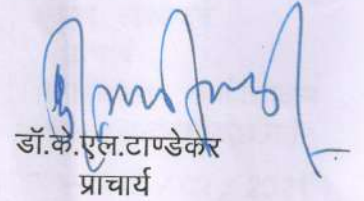 डॉ.के.एल.टाण्डेकर
प्राचार्य